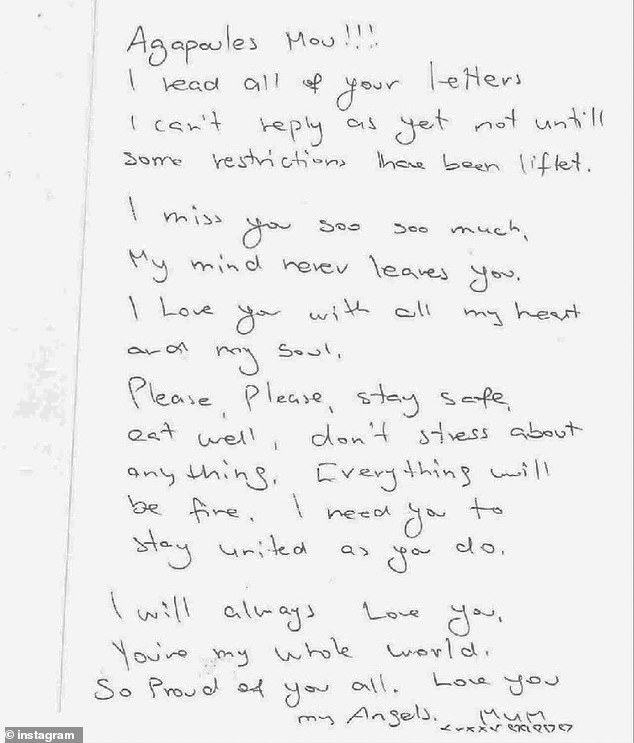 Agapoules Mou!!!
I read all of your letters
I can't reply as yet not untill
some restrictions have been liftet.
I miss you soo soo much,
My mind never leaves you.
I Love you with all my heart
and my soul.
Please, Please, stay safe,
eat well, don't stress about
anything. Everything will
be fine. I need you to
stay united as you do.
I will always Love you.
You're my whole world.
So Proud of you all. Love you
my Angels. MUM
xxxxx ♡♡♡♡♡
© instagram